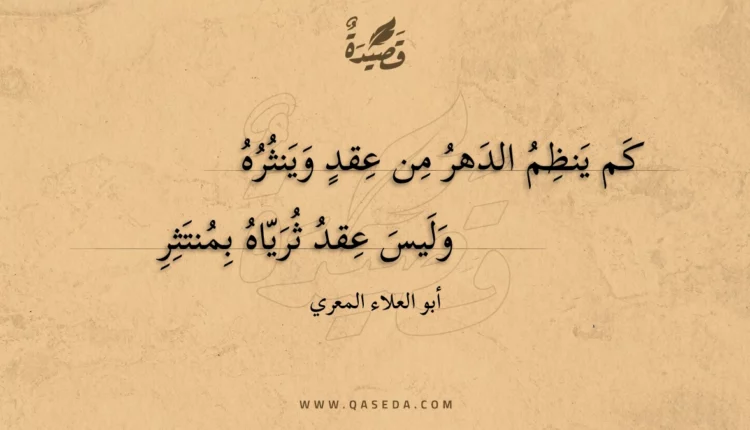 قَصِيدَةٌ
كَم يَنظِمُ الدَهرُ مِن عِقدٍ وَيَنثُرُهُ
وَلَيسَ عِقدُ ثُرَيّاهُ بِمُنتَثِرِ
أبو العلاء المعري
WWW.QASEDA.COM